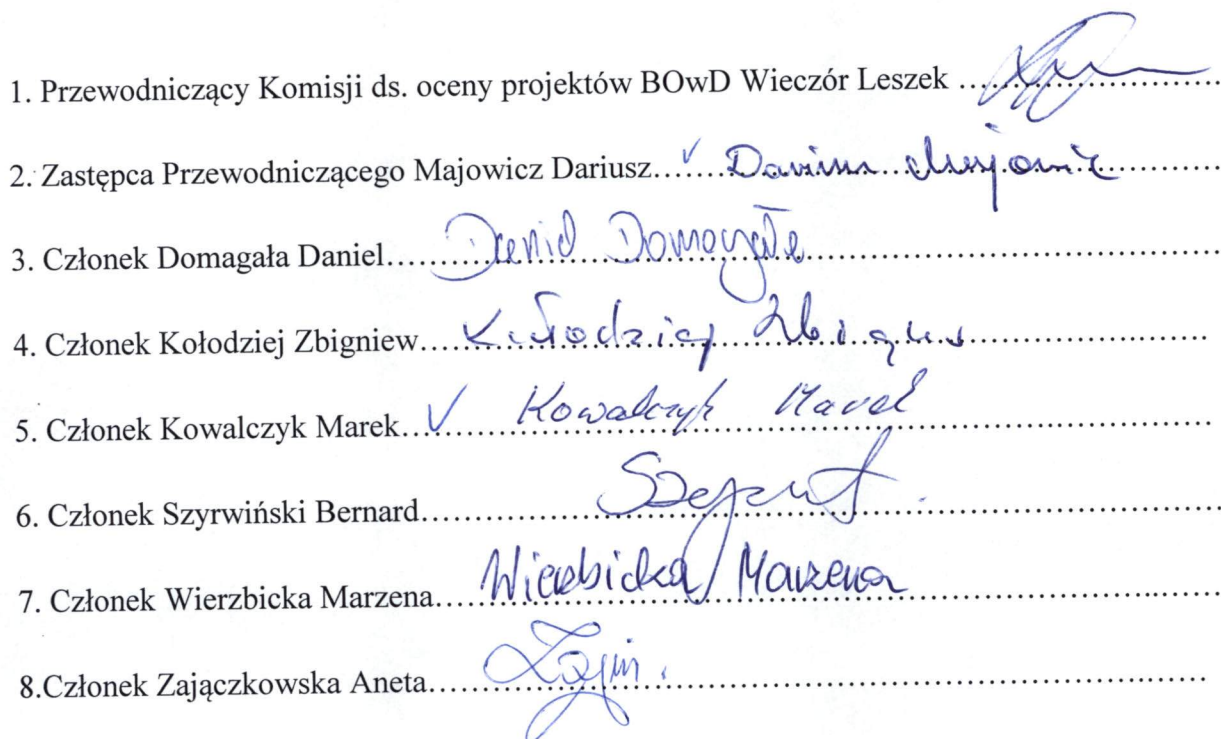 1. Przewodniczący Komisji ds. oceny projektów BOwD Wieczór Leszek ..............................
2. Zastępca Przewodniczącego Majowicz Dariusz....... Dariusz Majowicz
3. Członek Domagała Daniel....... Daniel Domagała
4. Członek Kołodziej Zbigniew....... Kołodziej Zbigniew
5. Członek Kowalczyk Marek....... Kowalczyk Marek
6. Członek Szyrwiński Bernard..............................
7. Członek Wierzbicka Marzena....... Wierzbicka Marzena
8.Członek Zajączkowska Aneta..............................